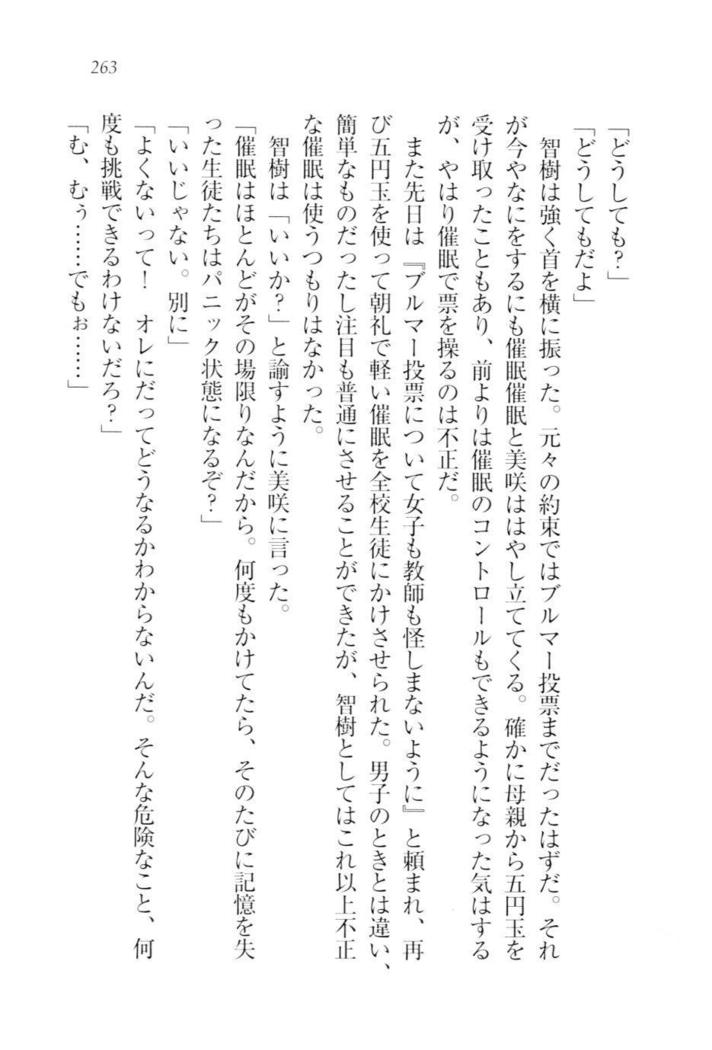 263
「どうしても?」
「どうしてもだよ」
　智樹は強く首を横に振った。元々の約束ではブルマー投票までだったはずだ。それ
が今やなにをするにも催眠催眠と美咲ははやし立ててくる。確かに母親から五円玉を
受け取ったこともあり、前よりは催眠のコントロールもできるようになった気はする
が、やはり催眠で票を操るのは不正だ。
　また先日は『ブルマー投票について女子も教師も怪しまないように』と頼まれ、再
び五円玉を使って朝礼で軽い催眠を全校生徒にかけさせられた。男子のときとは違い、
簡単なものだったし注目も普通にさせることができたが、智樹としてはこれ以上不正
な催眠は使うつもりはなかった。
　智樹は「いいか?」と諭すように美咲に言った。
「催眠はほとんどがその場限りなんだから。何度もかけてたら、そのたびに記憶を失
った生徒たちはパニック状態になるぞ?」
「いいじゃない。別に」
「よくないって!　オレにだってどうなるかわからないんだ。そんな危険なこと、何
度も挑戦できるわけないだろ?」
「む、むぅ……でもぉ……」